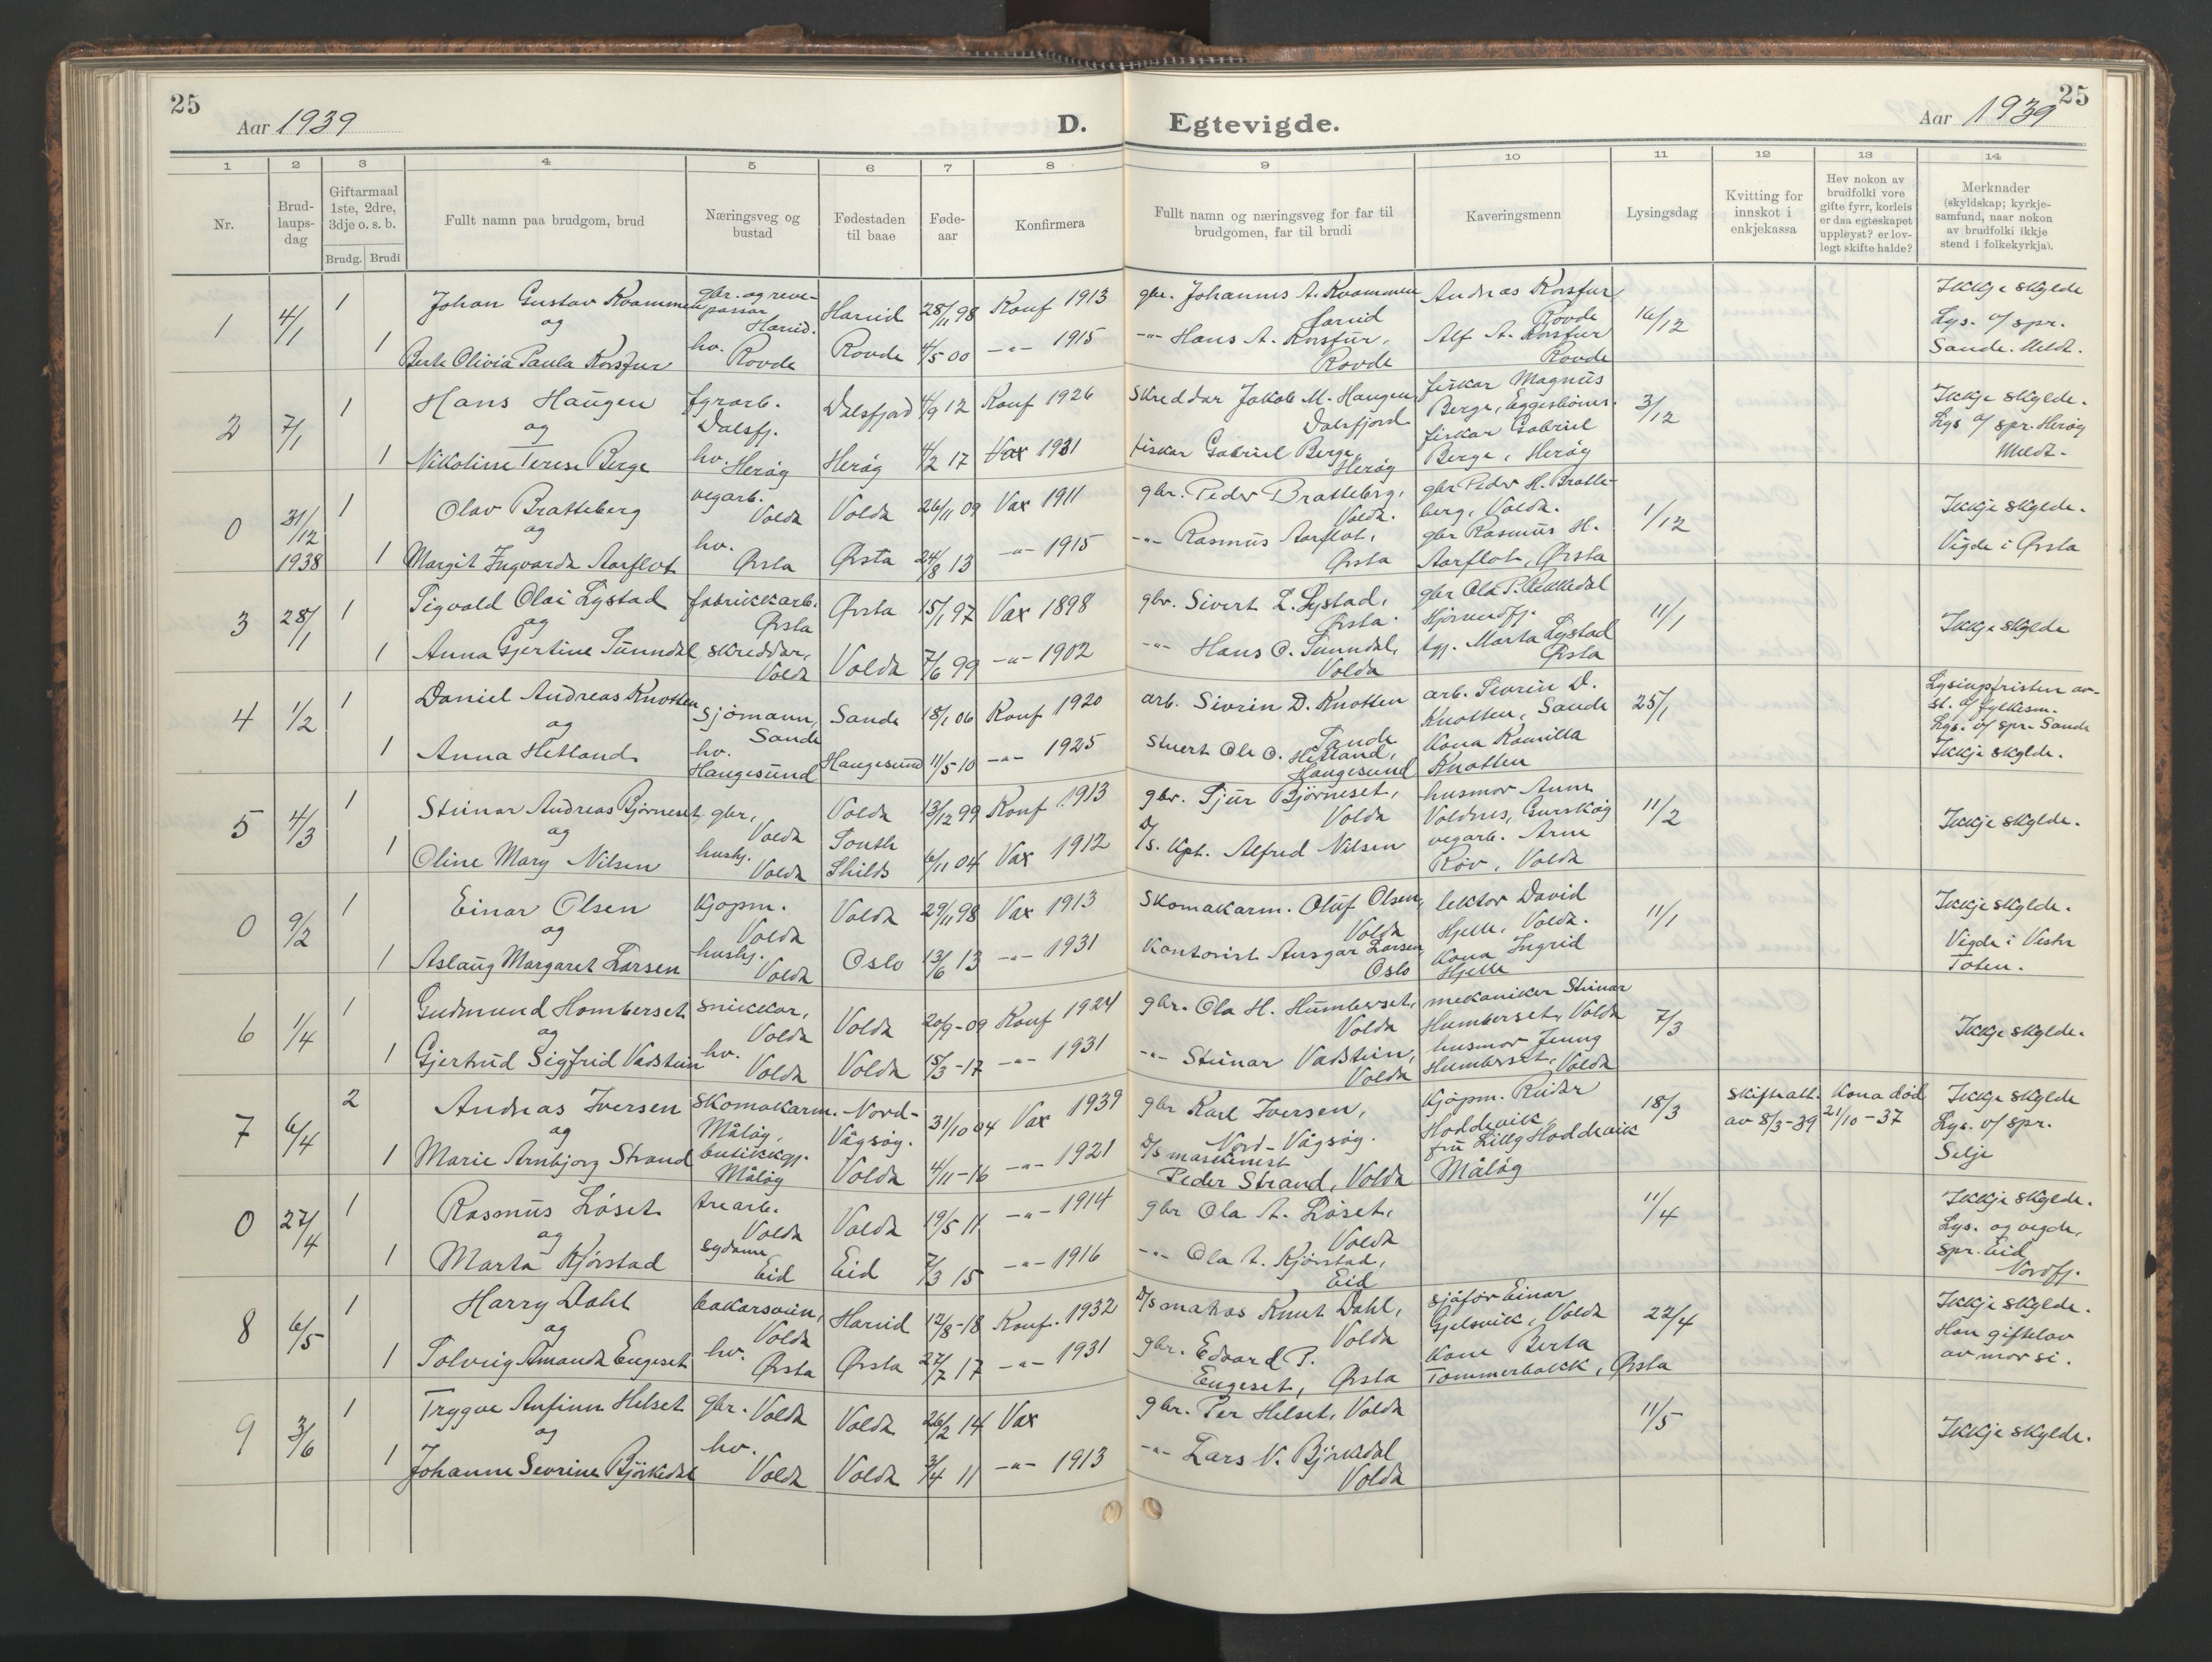 25
Aar 1939
D.
Egtevigde.
Aar 1939
25
1 2 3 4 5 6 7 8 9 10 11 12 13 14
Nr.
Brud-
laups-
dag
Giftarmaal
1ste, 2dre,
3dje o. s. b.
Brudg. Brudi
Fullt namn paa brudgom, brud
Næringsveg og
bustad
Fødestaden
til baae
Føde-
aar
Konfirmera
Fullt namn og næringsveg for far til
brudgomen, far til brudi
Kaveringsmenn
Lysingsdag
Kvitting for
innskot i
enkjekassa
Hev nokon av
brudfolki vore
gifte fyrr, korleis
er daa egteskapet
uppløyst? er lov-
legt skifte halde?
Merknader
(skyldskap; kyrkje-
samfund, naar nokon
av brudfolki ikkje
stend i folkekyrkja).
1 4/1 1 Johan Gustav Kvammen gbr. og reve-
passar Hareid. Hareid 28/11 98 Konf 1913 gbr. Johannes A. Kvammen Hareid Andreas Korsfur Rovde 16/12 Ikkje skylde
og Lys. o/ spr.
1 Berte Olivia Paula Korsfur hv. Rovde Rovde 4/5 00 -"- 1915 -"- Hans A. Korsfur, Rovde Alf A. Korsfur Rovde Sande. Meldt.
2 7/1 1 Hans Haugen fyrarb. Dalsfj. Dalsfjord 4/9 12 Konf 1926 Skreddar Jakob M. Haugen Dalsfjord fiskar Magnus Berge, Eggesbönes. 3/12 Ikkje skylde.
og Lys o/ spr. Heröy
1 Nikoline Terese Berge hv. Heröy Heröy 4/2 17 Vax 1931 fiskar Gabriel Berge, Heröy fiskar Gabriel Berge, Heröy Meldt.
0 31/12 1938 1 Olav Bratteberg vegarb. Volda Volda 26/11 09 Vax 1911 gbr. Peder Bratteberg, Volda. gbr Peder H. Bratte-
berg, Volda. 1/12 Ikkje skylde.
og
1 Margit Ingvarda Aarflot hv. Ørsta Ørsta 24/8 13 -"- 1915 -"- Rasmus Aarflot, Ørsta gbr Rasmus H. Aarflot, Ørsta Vigde i Ørsta
3 28/1 1 Sigvald Olai Lystad fabrikkarb. Ørsta Ørsta 15/1 97 Vax 1898 gbr. Sivert L. Lystad, Ørsta. gbr Ola P. Rekkedal Hjörundfj. 11/1 Ikkje skylde
og
1 Anna Gjertine Sunndal, skreddar, Volda Volda 7/6 99 -"- 1902 -"- Hans O. Sunndal, Volda tgj. Marta Lystad Ørsta
4 1/2 1 Daniel Andreas Knotten sjömann, Sande Sande 18/1 06 Konf 1920 arb. Sivrin D. Knotten Sande arb. Sivrin D. Knotten, Sande 25/1 Lysingsfristen av-
st. o/ fylkesm.
og Lys. o/ spr. Sande
1 Anna Hetland hv. Haugesund Haugesund 11/5 10 -"- 1925 Stuert Ole O. Hetland, Haugesund Kona Kamilla Knotten Ikkje skylde.
5 4/3 1 Steinar Andreas Bjørneset, gbr, Volda Volda 13/12 99 Konf 1913 gbr. Sjur Björneset, Volda husmor Anna Voldnes, Gurskøy 11/2 Ikkje skylde.
og
1 Oline Mary Nilsen hushj. Volda South Shilds 6/11 04 Vax 1912 D/s. kpt. Alfred Nilsen vegarb. Arne Röv, Volda
0 9/2 1 Einar Olsen kjøpm. Volda Volda 29/11 98 Vax 1913 Skomakarm. Oluf Olsen, Volda lektor David Hjelle, Volda. 11/1 Ikkje skylde.
og
1 Aslaug Margaret Larsen hushj. Volda Oslo 13/6 13 -"- 1931 Kontorist Ansgar Larsen, Oslo Kona Ingrid Hjelle Vigde i Vestr
Toten.
6 1/4 1 Gudmund Homberset snikkar, Volda Volda 20/9-09 Konf 1924 gbr. Ola H. Humberset, Volda mekaniker Steinar Humberset, Volda 7/3 Ikkje skylde.
og
1 Gjertrud Sigfrid Vadstein hv. Volda Volda 15/3-17 -"- 1931 -"- Steinar Vadstein, Volda husmor Jenny Humberset, Volda
7 6/4 2 Andreas Iversen skomakarm. Måløy, Nord-
Vågsøy. 31/10 04 Vax 1939 gbr Karl Iversen, Nord-Vågsøy. Kjøpm. Reidar Hoddevik 18/3 Skifteatt.
av 8/3-39 Kona död
21/10-37 Ikkje skylde
og Lys. o/ spr.
1 Marie Arnbjorg Strand butikkgj. Måløy Volda 4/11-16 -"- 1921 D/s maskinist Peder Strand, Volda fru Lilly Hoddevik Måløy Selje
0 27/4 1 Rasmus Løset trearb. Volda Volda 19/5 11 -"- 1914 gbr Ola A. Løset, Volda 11/4 Ikkje skylde.
og Lys. og vegde,
1 Marta Kjörstad sydame Eid Eid 7/3 15 -"- 1916 -"- Ola A. Kjörstad, Eid spr. Eid
Nordfj.
8 6/5 1 Harry Dahl bakarsvein, Volda Hareid 12/8-18 Konf. 1932 D/s matros Knut Dahl, Volda sjåför Einar Gjelsvik, Volda 22/4 Ikkje skylde.
og Han giftelov
1 Solveig Amanda Engeset hv. Ørsta Ørsta 27/7 17 -"- 1931 gbr. Edvard P. Engeset, Ørsta Kone Berta Tommerbakk, Ørsta av mor si.
9 3/6 1 Trygve Anfinn Helset gbr. Volda Volda 26/2 14 Vax gbr. Per Helset, Volda 11/5 Ikkje skylde.
og
1 Johanne Sevrine Björkedal hv. Volda Volda 3/4 11 -"- 1913 -"- Lars N. Björkedal Volda